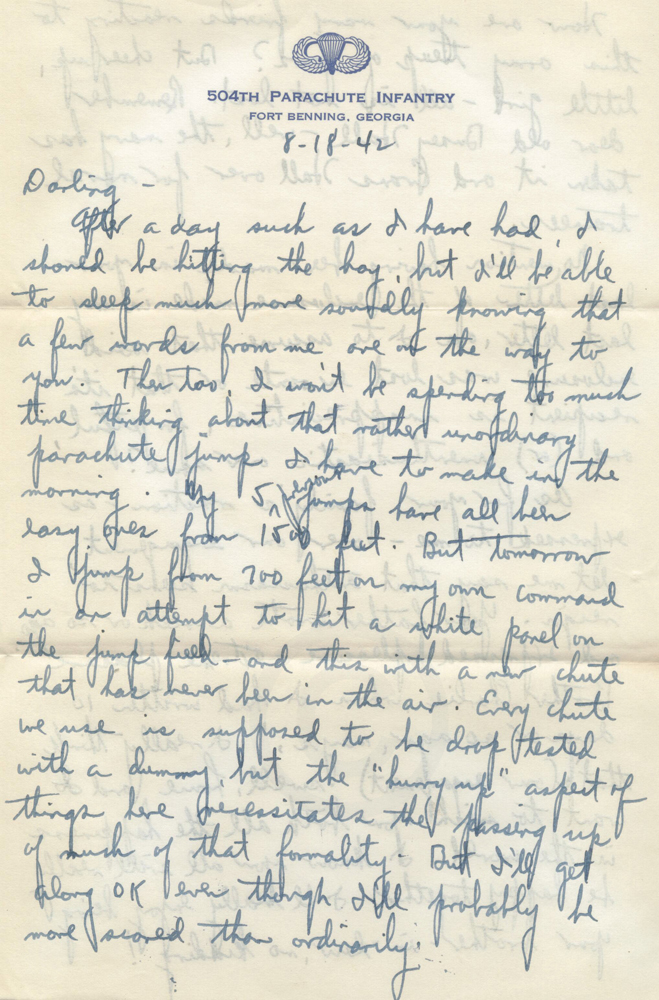 504TH PARACHUTE INFANTRY
FORT BENNING, GEORGIA
8-18-42
Darling -
After a day such as I have had, I
should be hitting the hay, but I'll be able
to sleep much more soundly knowing that
a few words from me are on the way to
you. Then too, I won't be spending too much
time thinking about that rather unordinary
parachute jump I have to make in the
morning. My 5 previous jumps have all been
easy ones from 1500 feet. But tomorrow
I jump from 700 feet on my own command
in an attempt to hit a white panel on
the jump field - and this with a new chute
that has never been in the air. Every chute
we use is supposed to be drop tested
with a dummy, but the "hurry up" aspect of
things here necessitates the passing up
of much of that formality. But I'll get
along OK even though I'll probably be
more scared than ordinarily.